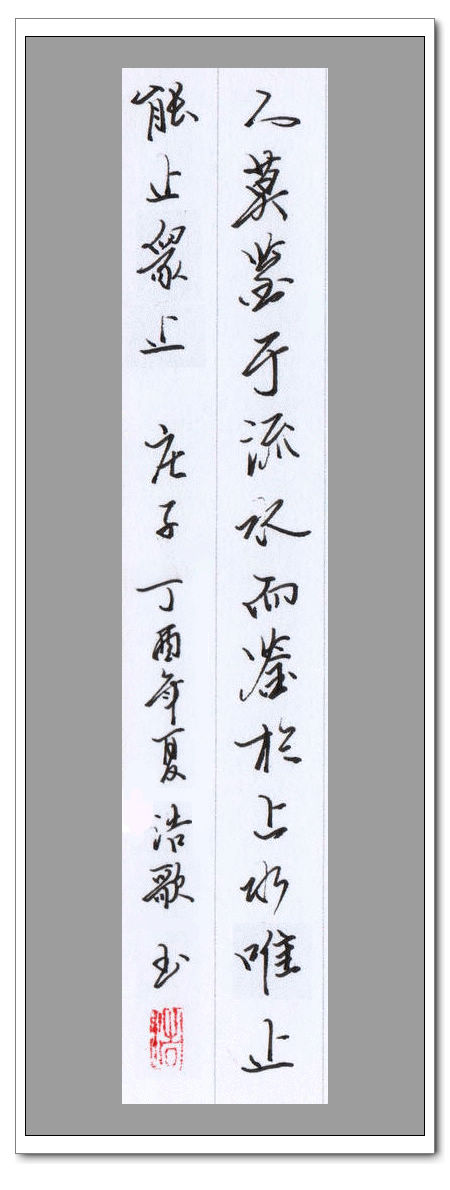 人莫鉴于流水而鉴於止水唯止
能止眾止 庄子 丁酉年夏浩歌 书
浩